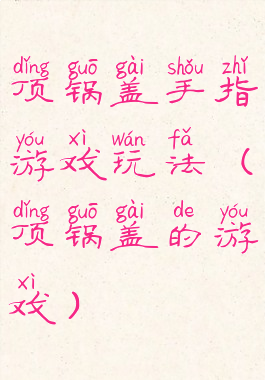 dǐng guō gài shǒu zhǐ
顶锅盖手指
yóu xì wán fǎ
游戏玩法（
dǐng guō gài de yóu
顶锅盖的游
xì
戏）